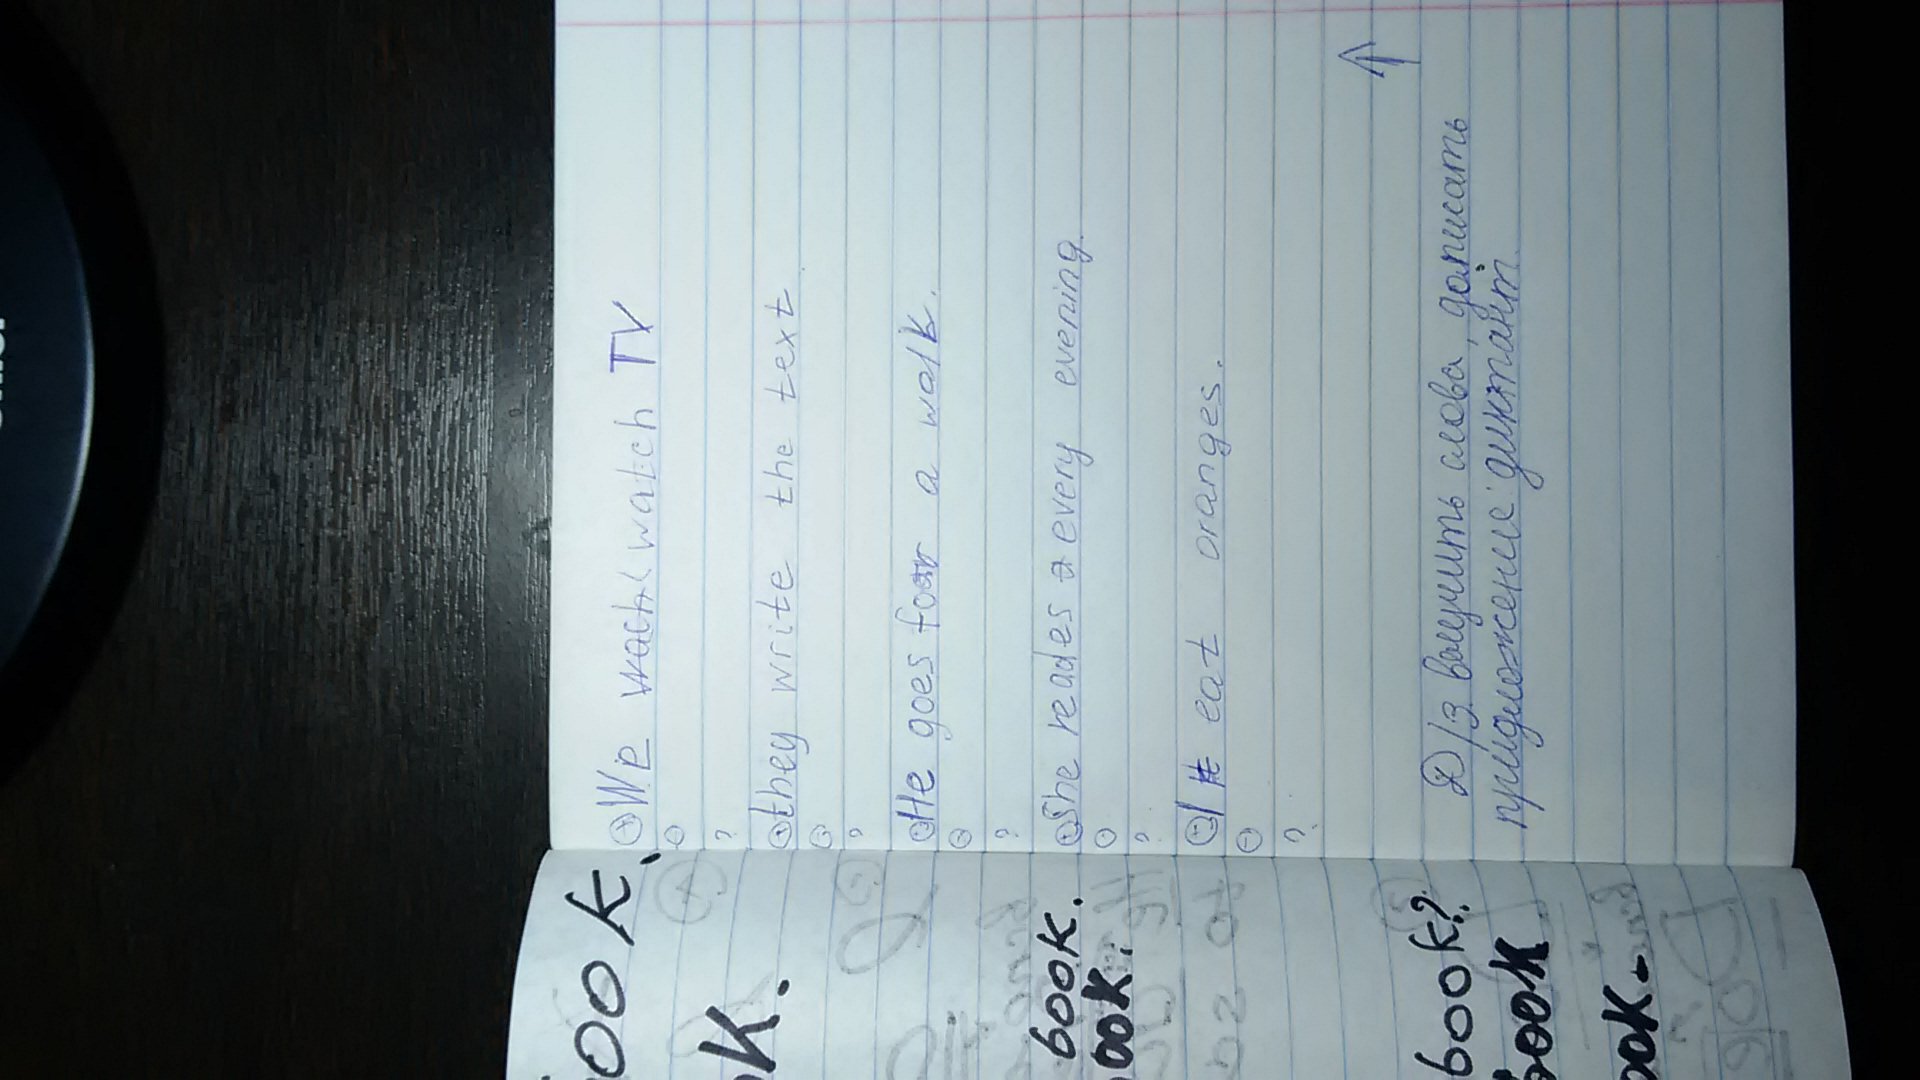 ⊕ We watch TV
⊖
?
⊕ they write the text
⊖
?
⊕ He goes for a walk.
⊖
?
⊕ She reades every evening.
⊖
?
⊕ I eat oranges.
⊖
?
Д/з выучить слова, дописать
предложение: диктант.
ook.
ok.
book.
ook.
book?
book
ook.